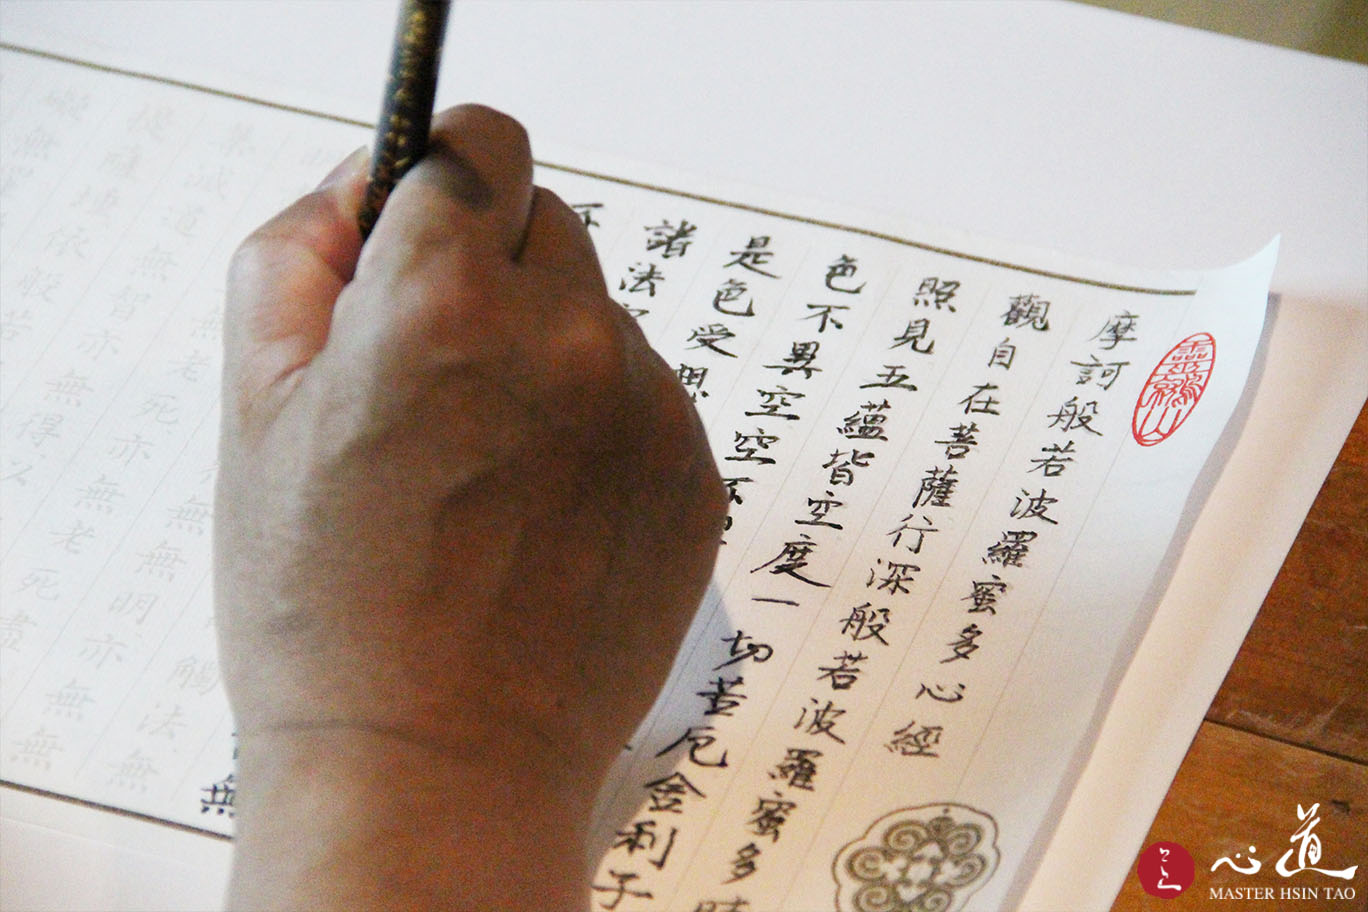 靈鷲山
摩訶般若波羅蜜多心經
觀自在菩薩行深般若波羅蜜多時
照見五蘊皆空度一切苦厄舍利子
色不異空空不異
是色受想
諸法空
不
無
觸法無
無無明亦無無
無老死亦無老死盡
集滅道無智亦無得以
提薩埵依般若
礙無罣
心道
MASTER HSIN TAO